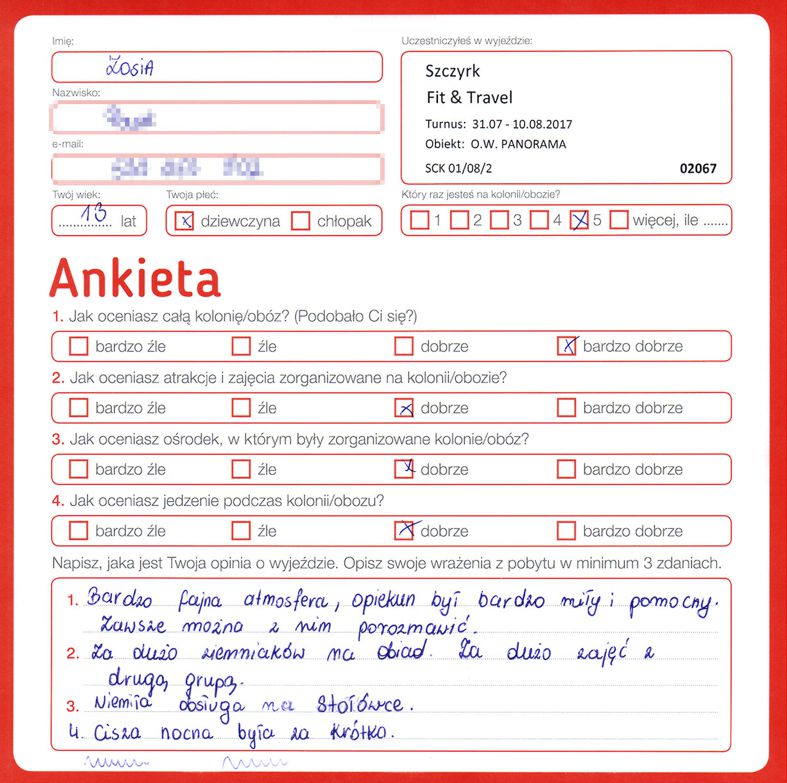 Imię:
Zosia
Nazwisko:
e-mail:
Twój wiek:
13 lat
Twoja płeć:
dziewczyna chłopak
Uczestniczyłeś w wyjeździe:
Szczyrk
Fit & Travel
Turnus: 31.07 - 10.08.2017
Obiekt: O.W. PANORAMA
SCK 01/08/2 02067
Który raz jesteś na kolonii/obozie?
1 2 3 4 5 więcej, ile .......
Ankieta
1. Jak oceniasz całą kolonię/obóz? (Podobało Ci się?)
bardzo źle źle dobrze bardzo dobrze
2. Jak oceniasz atrakcje i zajęcia zorganizowane na kolonii/obozie?
bardzo źle źle dobrze bardzo dobrze
3. Jak oceniasz ośrodek, w którym były zorganizowane kolonie/obóz?
bardzo źle źle dobrze bardzo dobrze
4. Jak oceniasz jedzenie podczas kolonii/obozu?
bardzo źle źle dobrze bardzo dobrze
Napisz, jaka jest Twoja opinia o wyjeździe. Opisz swoje wrażenia z pobytu w minimum 3 zdaniach.
1. Bardzo fajna atmosfera, opiekun był bardzo miły i pomocny.
Zawsze można z nim porozmawić.
2. Za dużo ziemniaków na obiad. Za dużo zajęć z
drugą grupą.
3. Niemiła obsługa na stołówce.
4. Cisza nocna była za krótko.